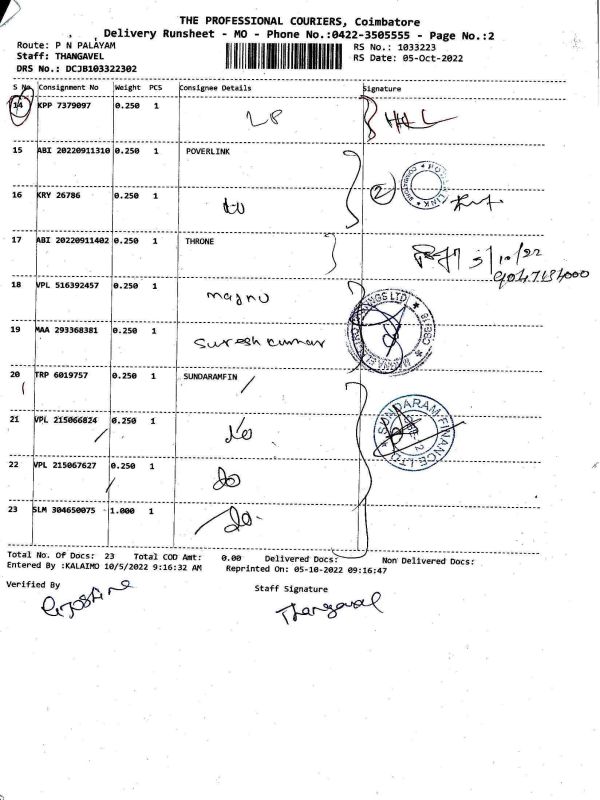 THE PROFESSIONAL COURIERS, Coimbatore
Delivery Runsheet - MO - Phone No.:0422-3505555 - Page No.:2
Route: P N PALAYAM RS No.: 1033223
Staff: THANGAVEL RS Date: 05-Oct-2022
DRS No.: DCJB103322302
S No Consignment No Weight PCS Consignee Details Signature
14 KPP 7379097 0.250 1
15 ABI 20220911310 0.250 1 POVERLINK
16 KRY 26786 0.250 1 do 2
17 ABI 20220911402 0.250 1 THRONE 5/10/22
18 VPL 516392457 0.250 1 magnu
19 MAA 293368381 0.250 1 Suresh kumar
20 TRP 6019757 0.250 1 SUNDARAMFIN
21 VPL 215066824 0.250 1 do SUNDARAM FINANCE LTD
22 VPL 215067627 0.250 1 do
23 SLM 304650075 1.000 1 do
Total No. Of Docs: 23 Total COD Amt: 0.00 Delivered Docs: Non Delivered Docs:
Entered By :KALAIMO 10/5/2022 9:16:32 AM Reprinted On: 05-10-2022 09:16:47
Verified By Staff Signature
Thangavel